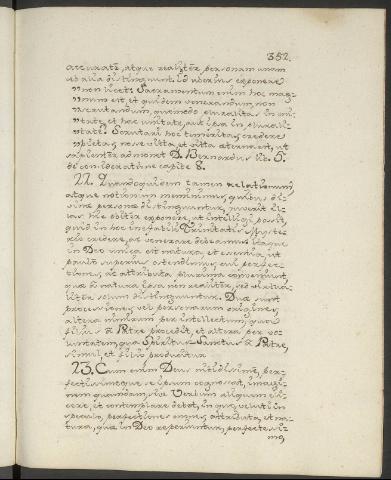 352.
accurate, atque realiter personam unam
ab alia distinguunt. id uberius exponere
„non licet. Sacramentum enim hoc mag-
„num est, et quidem venerandum, non
„scrutandum, quomodo pluralitas in uni-
„tate, et hoc unitate, aut ipsa in plurali-
„tate. Scrutari hoc temeritas, credere
„pietas, nosse vita, et vita aeterna est, ut
sapienter admonet D. Bernardus lib. 5.
de consideratione capite 8.
22. Quandoquidem tamen relationum,
atque notionum meminimus, quibus di-
vinae personae distinguuntur, juverit il-
las hic obiter exponere, ut intelligi possit,
quid in hoc ineffabili Trinitatis Myste-
rio credere, ac venerari debeamus. Itaque
in Deo unica est natura, et essentia, ut
paulo superius ostendimus, cui perfec-
tiones, ac attributa plurima conveniunt,
quae a natura ipsa non realiter, sed virtua-
liter solum distinguuntur. Duae sunt
processiones, vel personarum origines,
altera nimirum per intellectum, qua
filius a Patre procedit, et altera per vo-
luntatem, qua Spiritus Sanctus a Patre,
simul, et filio producitur.
23. Cum enim Deus nitidissime, per-
fectissimeque se ipsum cognoscat, imagi-
nem quamdam, sive Verbum aliquem di-
cere, et contemplare debet, in quo, veluti in
speculo, perfectiones omnes, attributa, et na-
tura, quae in Deo reperiuntur, perfectissi-
me,